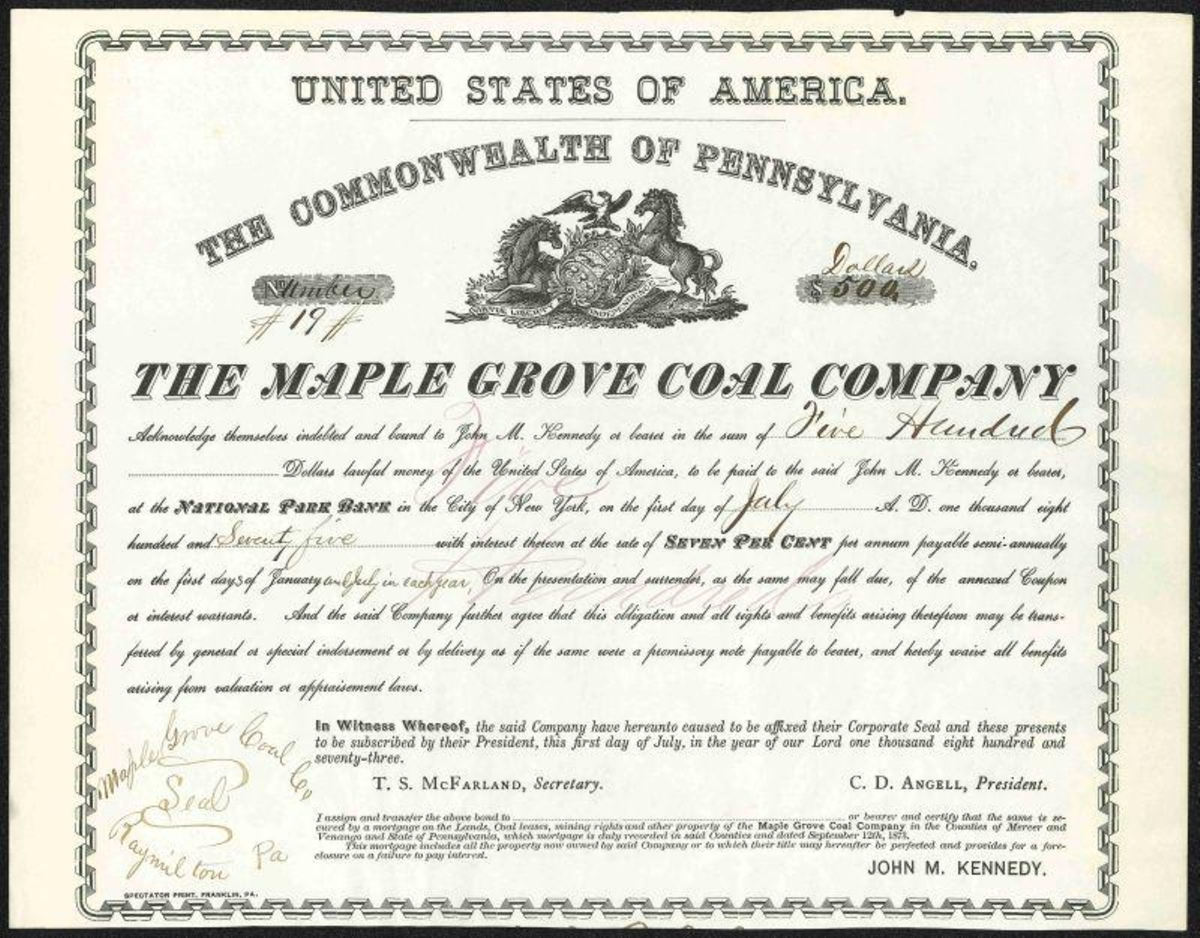 UNITED STATES OF AMERICA.
THE COMMONWEALTH OF PENNSYLVANIA.
Number
# 19 #
Dollars
$ 500.
VIRTUE LIBERTY INDEPENDENCE
THE MAPLE GROVE COAL COMPANY
Acknowledge themselves indebted and bound to John M. Kennedy or bearer in the sum of Five Hundred
Dollars lawful money of the United States of America, to be paid to the said John M. Kennedy or bearer,
at the NATIONAL PARK BANK in the City of New York, on the first day of July A. D. one thousand eight
hundred and Seventy five with interest thereon at the rate of SEVEN PER CENT per annum payable semi-annually
on the first days of January and July in each year, On the presentation and surrender, as the same may fall due, of the annexed Coupon
or interest warrants. And the said Company further agree that this obligation and all rights and benefits arising therefrom may be trans-
ferred by general or special indorsement or by delivery as if the same were a promissory note payable to bearer, and hereby waive all benefits
arising from valuation or appraisement laws.
Five
Hundred
In Witness Whereof, the said Company have hereunto caused to be affixed their Corporate Seal and these presents
to be subscribed by their President, this first day of July, in the year of our Lord one thousand eight hundred and
seventy-three.
T. S. MCFARLAND, Secretary. C. D. ANGELL, President.
Maple Grove Coal Co
Seal
Raymilton Pa
I assign and transfer the above bond to or bearer and certify that the same is se-
cured by a mortgage on the Lands, Coal leases, mining rights and other property of the Maple Grove Coal Company in the Counties of Mercer and
Venango and State of Pennsylvania, which mortgage is duly recorded in said Counties and dated September 12th, 1873.
This mortgage includes all the property now owned by said Company or to which their title may hereafter be perfected and provides for a fore-
closure on a failure to pay interest.
JOHN M. KENNEDY.
SPECTATOR PRINT, FRANKLIN, PA.